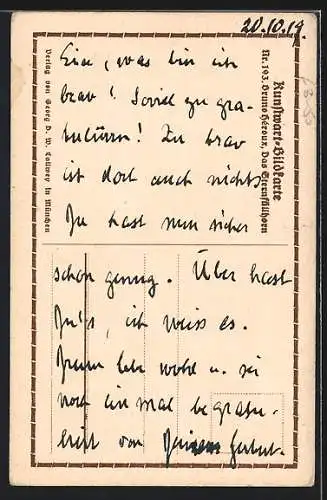 20.10.19.
Kunstwart-Bildkarte
Nr. 193. Bruno Héroux, Das Sternfüllhorn
Verlag von Georg D. W. Callwey in München
Ei, was bin ich
brav! Soviel zu gra-
tulieren! Zu brav
ist doch auch nichts
Du hast nun sicher
schon genug. Über hast
Du's, ich weiss es.
Drum lebe wohl u. sei
noch einmal begratu-
liert von Deinem